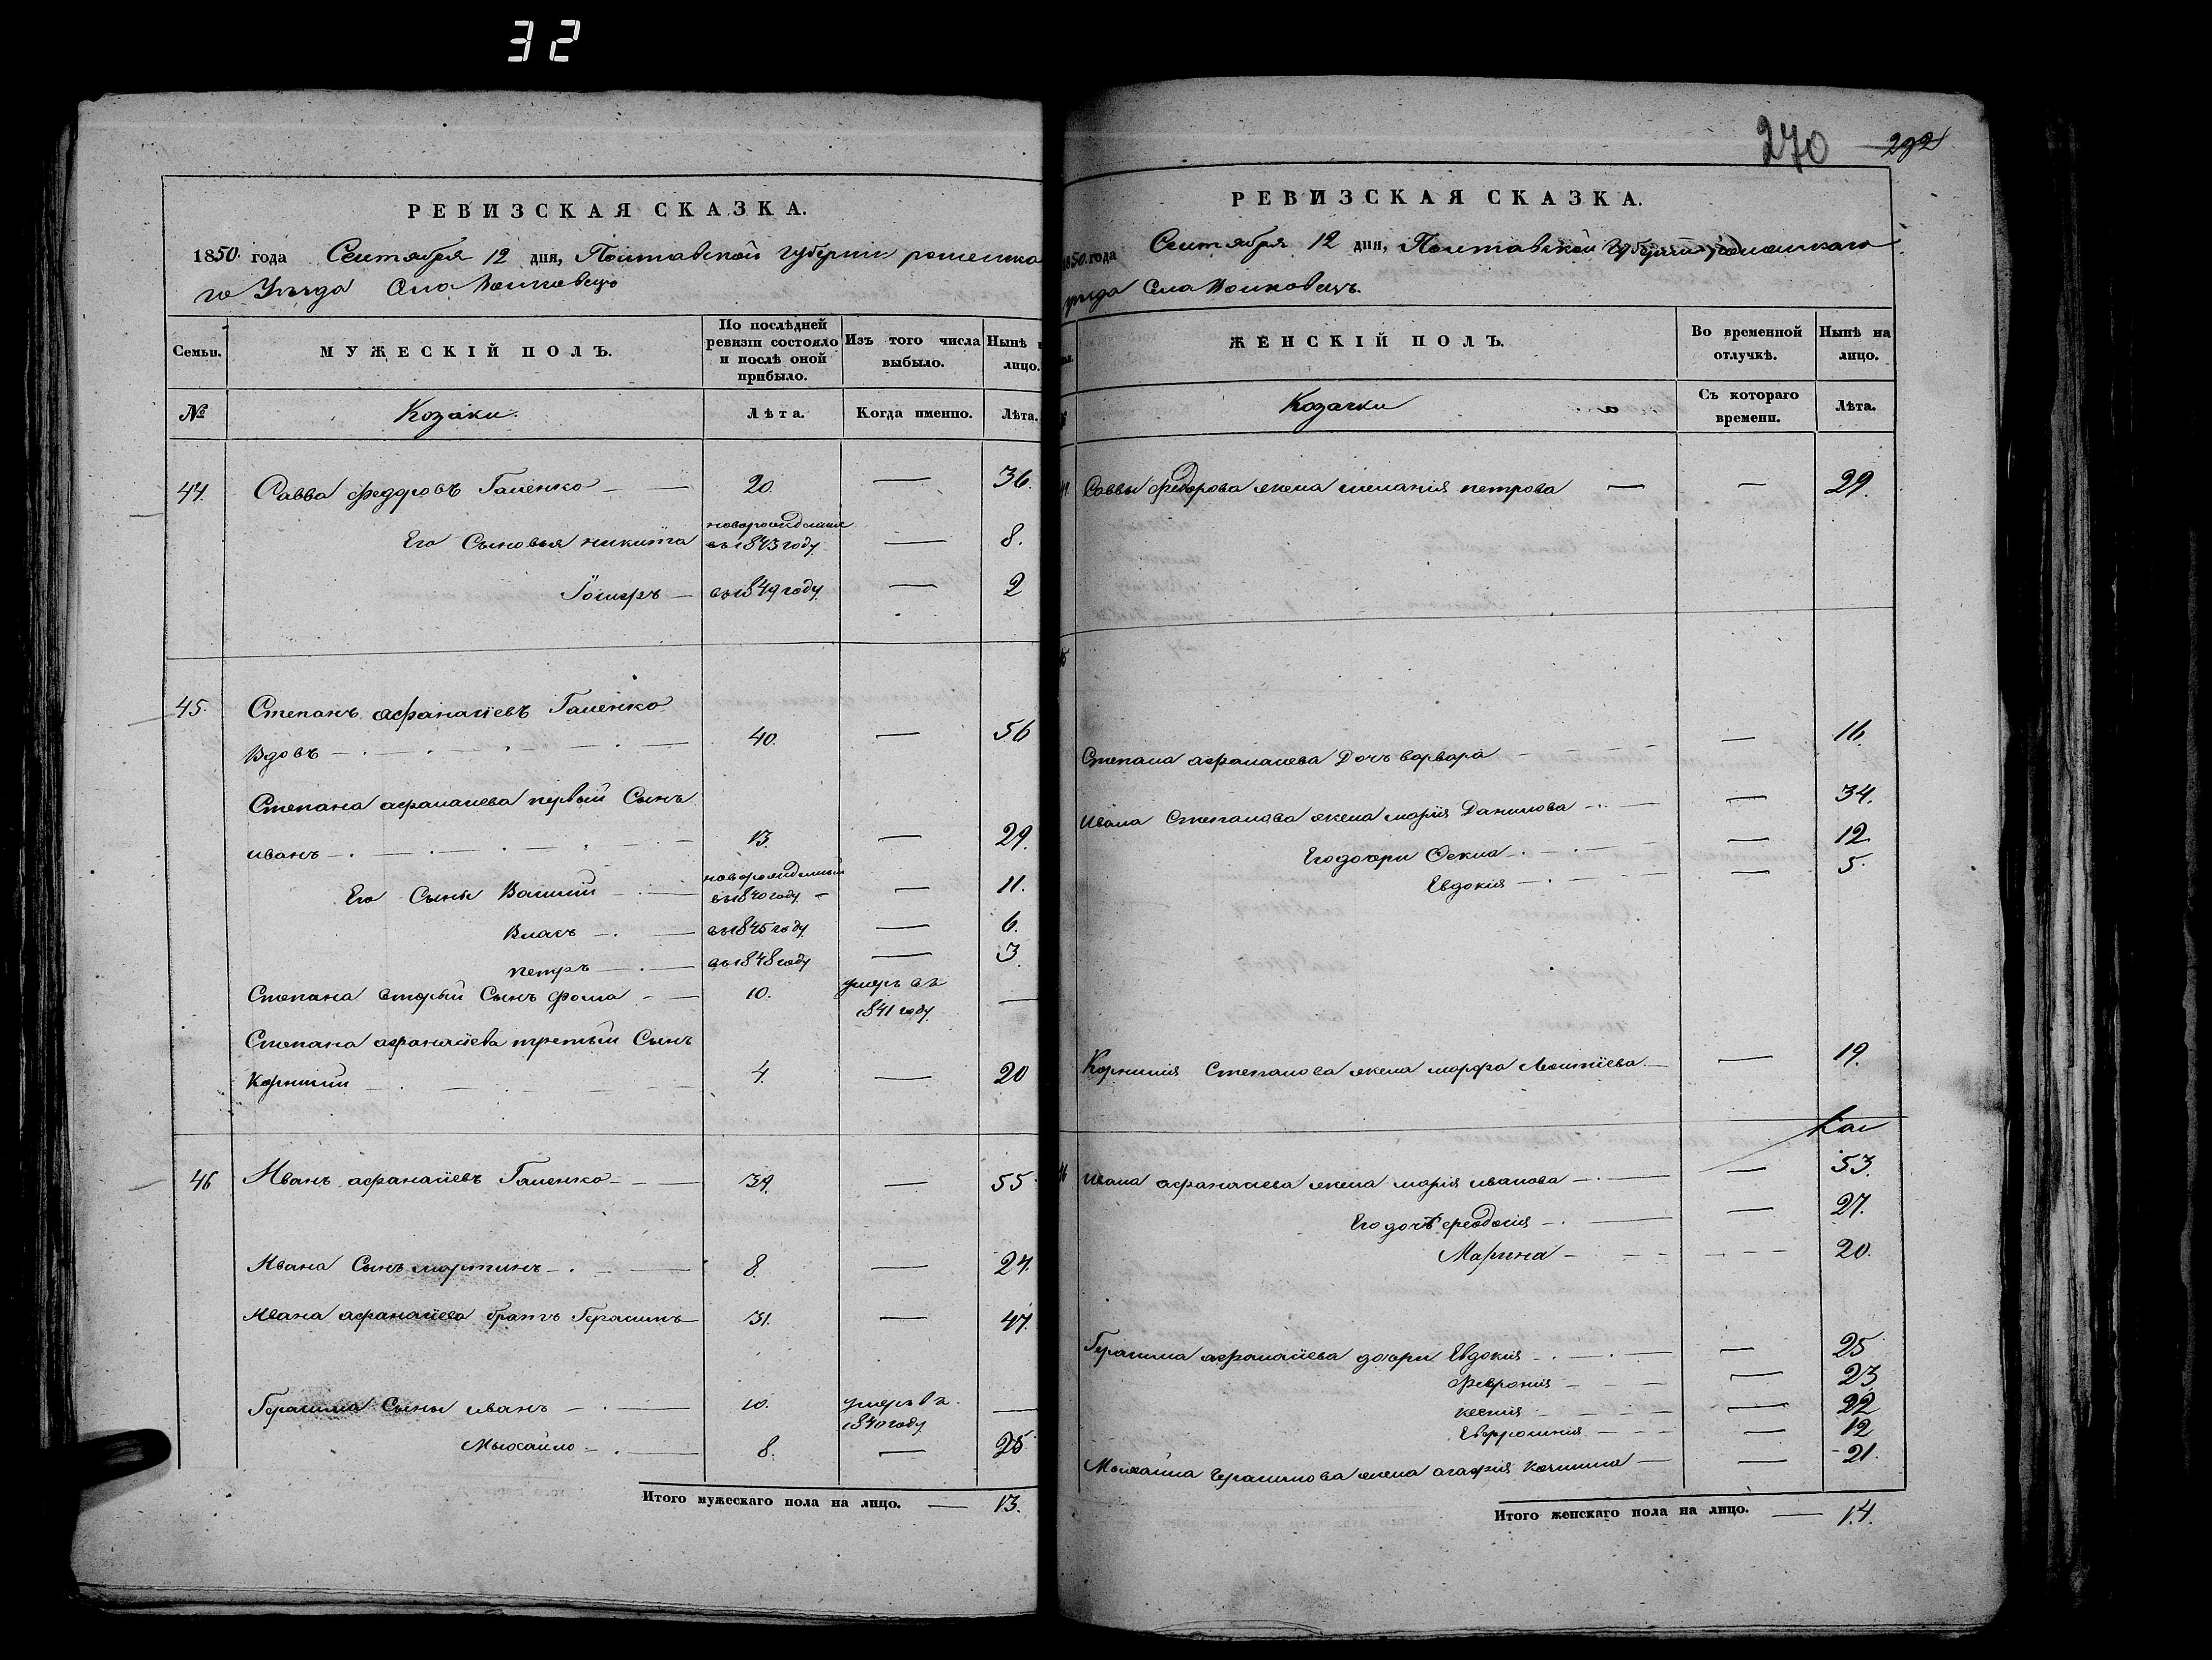 32
270 292
РЕВИЗСКАЯ СКАЗКА.
1850 года Сентября 12 дня, Полтавской губерніи роменска
го Уезда Села
Семьи.
МУЖЕСКІЙ ПОЛЪ.
По послѣдней
ревизіи состояло
и послѣ оной
прибыло.
Изъ того числа
выбыло.
Нынѣ н
лицо.
№
Козаки.
Лѣта.
Когда именно.
Лѣта.
44. Савва феддоровъ Галенко — 20. — 36.
новорожденные
Его Сыновья никита въ 1843 году — 8.
— въ 1849 году — 2
45. Степанъ афанасіевъ Галенко
Вдовъ — 40. — 56
Степана афанасиева первый Сынъ
иванъ — 13. — 29.
новорожденный
Его Сыны Василий — въ 1840 году — 11.
Власъ — въ 1845 году — 6.
петръ — въ 1848 году — 3
Степана вторый Сынъ фома — 10. умеръ въ
1841 году —
Степана афанасіева третый Сынъ
Корнилий — 4. — 20
46 Иванъ афанасіевъ Галенко — 39. — 55
Ивана Сынъ мартинъ — 8. — 24.
Ивана афанасіева братъ Герасимъ 31. — 47.
Герасима Сыны иванъ — 10. умеръ въ
1840 году —
Михайло — 8. — 25
Итого мужескаго пола на лицо. — 13.
РЕВИЗСКАЯ СКАЗКА.
1850 года Сентября 12 дня, Полтавской Губерніи роменскаго
уезда Села
ЖЕНСКІЙ ПОЛЪ.
Во временной
отлучкѣ.
Нынѣ на
лицо.
Козачки
Съ котораго
времени.
Лѣта.
Саввы федорова жена мелания петрова — — 29.
Степана афанасиева Дочъ варвара — 16.
Ивана Степанова жена марія Данилова — — 34.
Его дочри — — 12
Евдокия — — 5.
Корнилия Степанова жена марфа Леонтіева — — 19.
46 Ивана афанасиева жена марія иванова — — 53.
Его дочъ феодосия — — 27.
Марина — — 20.
Герасима афанасіева дочри Евдокия — — 25
Феврония — — 23
ксения — — 22
Евфросиния — — 12
Михайла Герасимова жена агафия — — 21.
Итого женскаго пола на лицо. — 14.